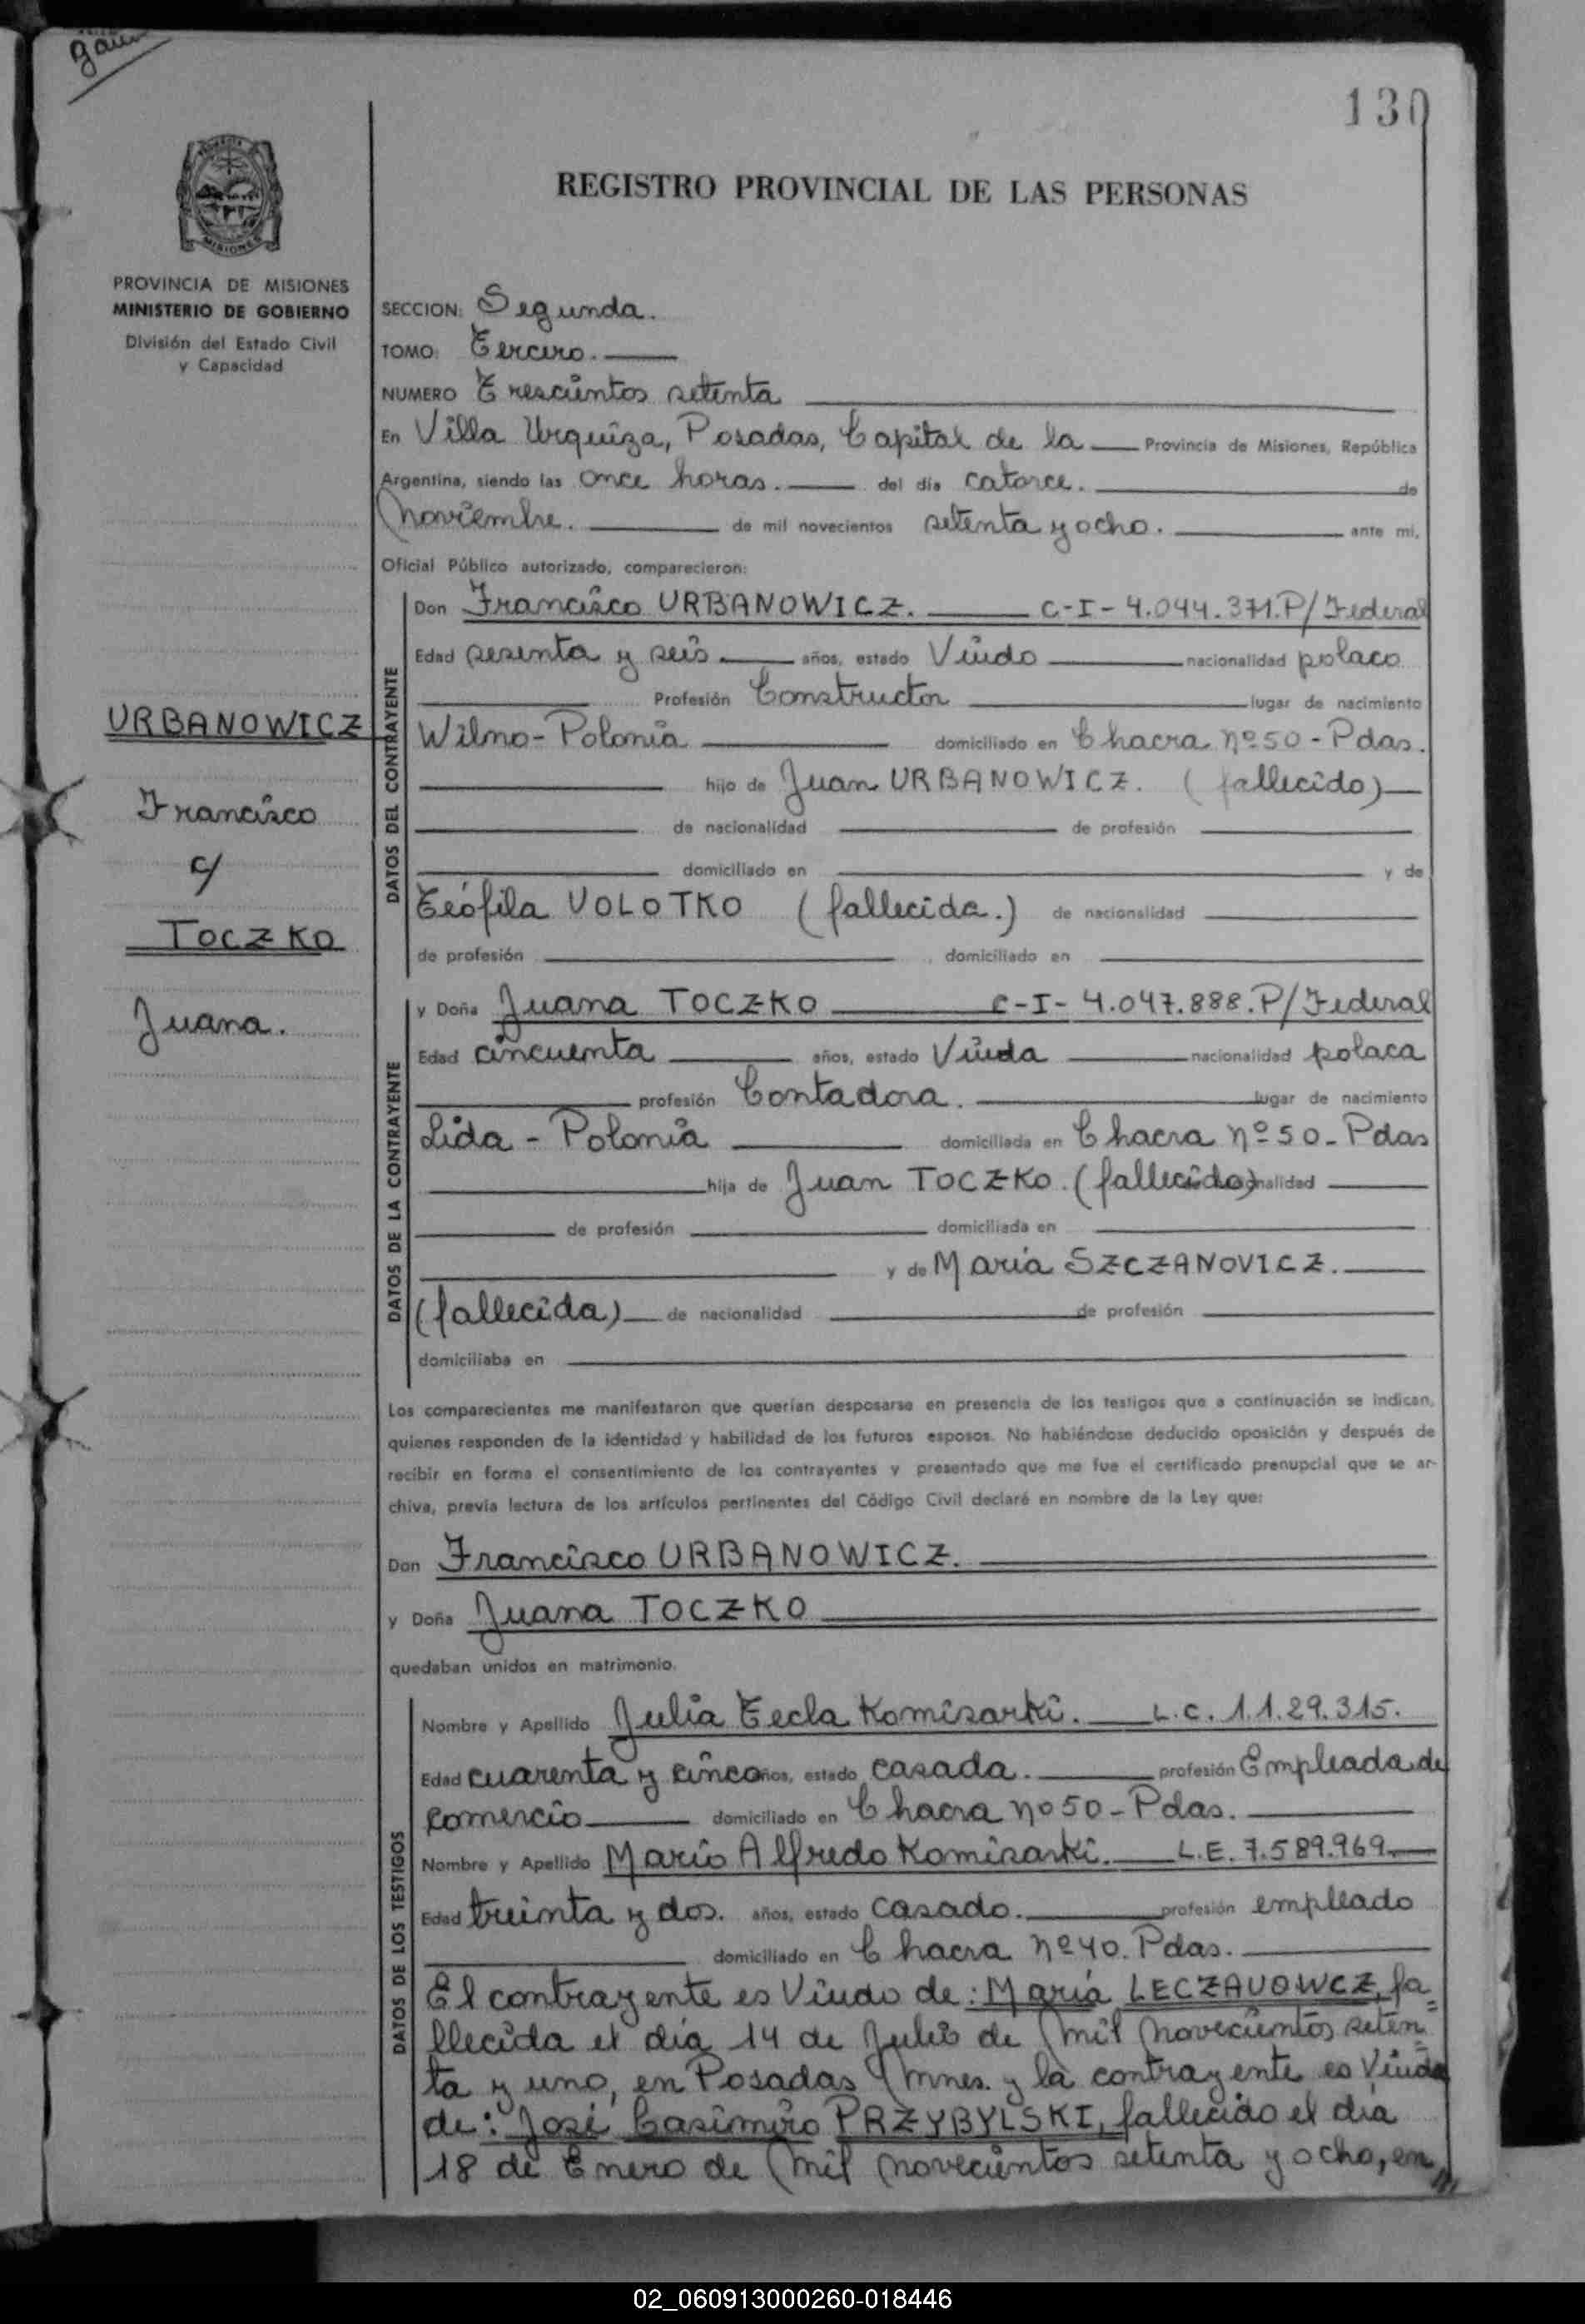 130
REGISTRO PROVINCIAL DE LAS PERSONAS
MISIONES
PROVINCIA DE MISIONES
MINISTERIO DE GOBIERNO
División del Estado Civil
y Capacidad
URBANOWICZ
Francisco
c/
TOCZKO
Juana.
SECCION: Segunda.
TOMO: Tercero.
NUMERO Trescientos setenta
En Villa Urquiza, Posadas, Capital de la Provincia de Misiones, República
Argentina, siendo las once horas. del día catorce. de
Noviembre. de mil novecientos setenta y ocho. ante mi,
Oficial Público autorizado, comparecieron:
DATOS DEL CONTRAYENTE
Don Francisco URBANOWICZ. C-I-4.044.371.P/Federal
Edad sesenta y seis años, estado Viudo nacionalidad polaco
Profesión Constructor lugar de nacimiento
Wilno-Polonia domiciliado en Chacra nº50-Pdas.
hijo de Juan URBANOWICZ. (fallecido)
de nacionalidad de profesión
domiciliado en y de
Teófila VOLOTKO (fallecida.) de nacionalidad
de profesión domiciliado en
DATOS DE LA CONTRAYENTE
y Doña Juana TOCZKO C-I-4.047.888.P/Federal
Edad cincuenta años, estado Viuda nacionalidad polaca
profesión Contadora. lugar de nacimiento
Lida - Polonia domiciliada en Chacra nº50-Pdas
hija de Juan TOCZKO. (fallecido) nalidad
de profesión domiciliada en
y de María SZCZANOVICZ.
(fallecida) de nacionalidad de profesión
domiciliaba en
Los comparecientes me manifestaron que querían desposarse en presencia de los testigos que a continuación se indican,
quienes responden de la identidad y habilidad de los futuros esposos. No habiéndose deducido oposición y después de
recibir en forma el consentimiento de los contrayentes y presentado que me fue el certificado prenupcial que se ar-
chiva, previa lectura de los artículos pertinentes del Código Civil declaré en nombre de la Ley que:
Don Francisco URBANOWICZ.
y Doña Juana TOCZKO
quedaban unidos en matrimonio.
DATOS DE LOS TESTIGOS
Nombre y Apellido Julia Tecla Komisarki. L.C. 1.1.29.315.
Edad cuarenta y cinco años, estado casada. profesión Empleada de
comercio domiciliado en Chacra nº50-Pdas.
Nombre y Apellido Mario Alfredo Komisarki. L.E. 7.589.969
Edad treinta y dos. años, estado casado. profesión empleado
domiciliado en Chacra nº40. Pdas.
El contrayente es Viudo de: María LECZAUOWCZ, fa=
llecida el día 14 de Julio de mil novecientos seten=
ta y uno, en Posadas Mnes. y la contrayente es Viuda
de: José Casimiro PRZYBYLSKI, fallecido el día
18 de Enero de mil novecientos setenta y ocho, en
02_060913000260-018446